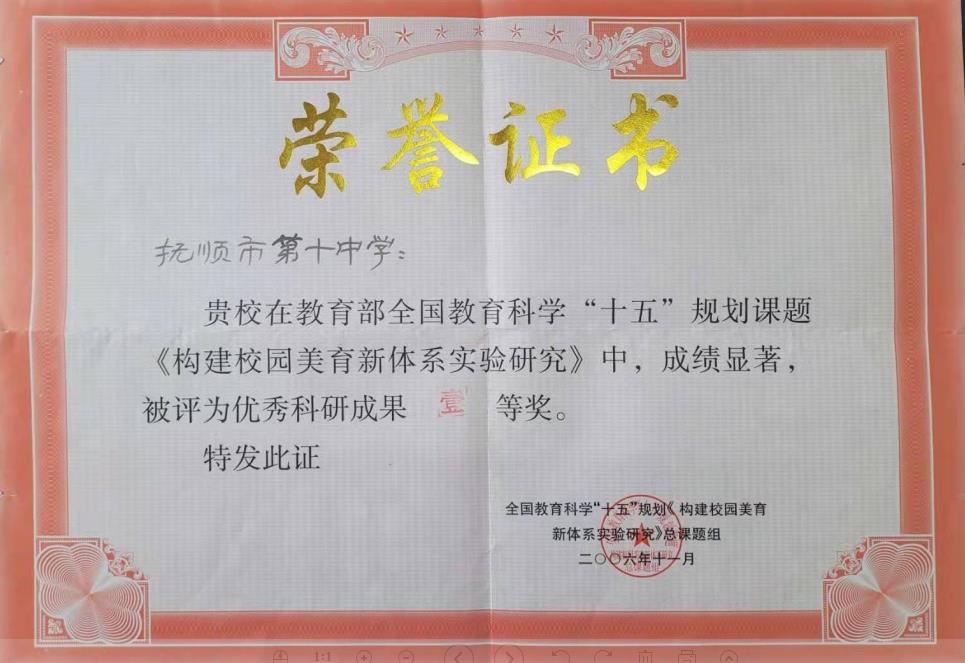 荣誉证书
抚顺市第十中学：
贵校在教育部全国教育科学“十五”规划课题
《构建校园美育新体系实验研究》中，成绩显著，
被评为优秀科研成果 壹 等奖。
特发此证
全国教育科学“十五”规划《构建校园美育
新体系实验研究》总课题组
二〇〇六年十一月
总课题组
1:1